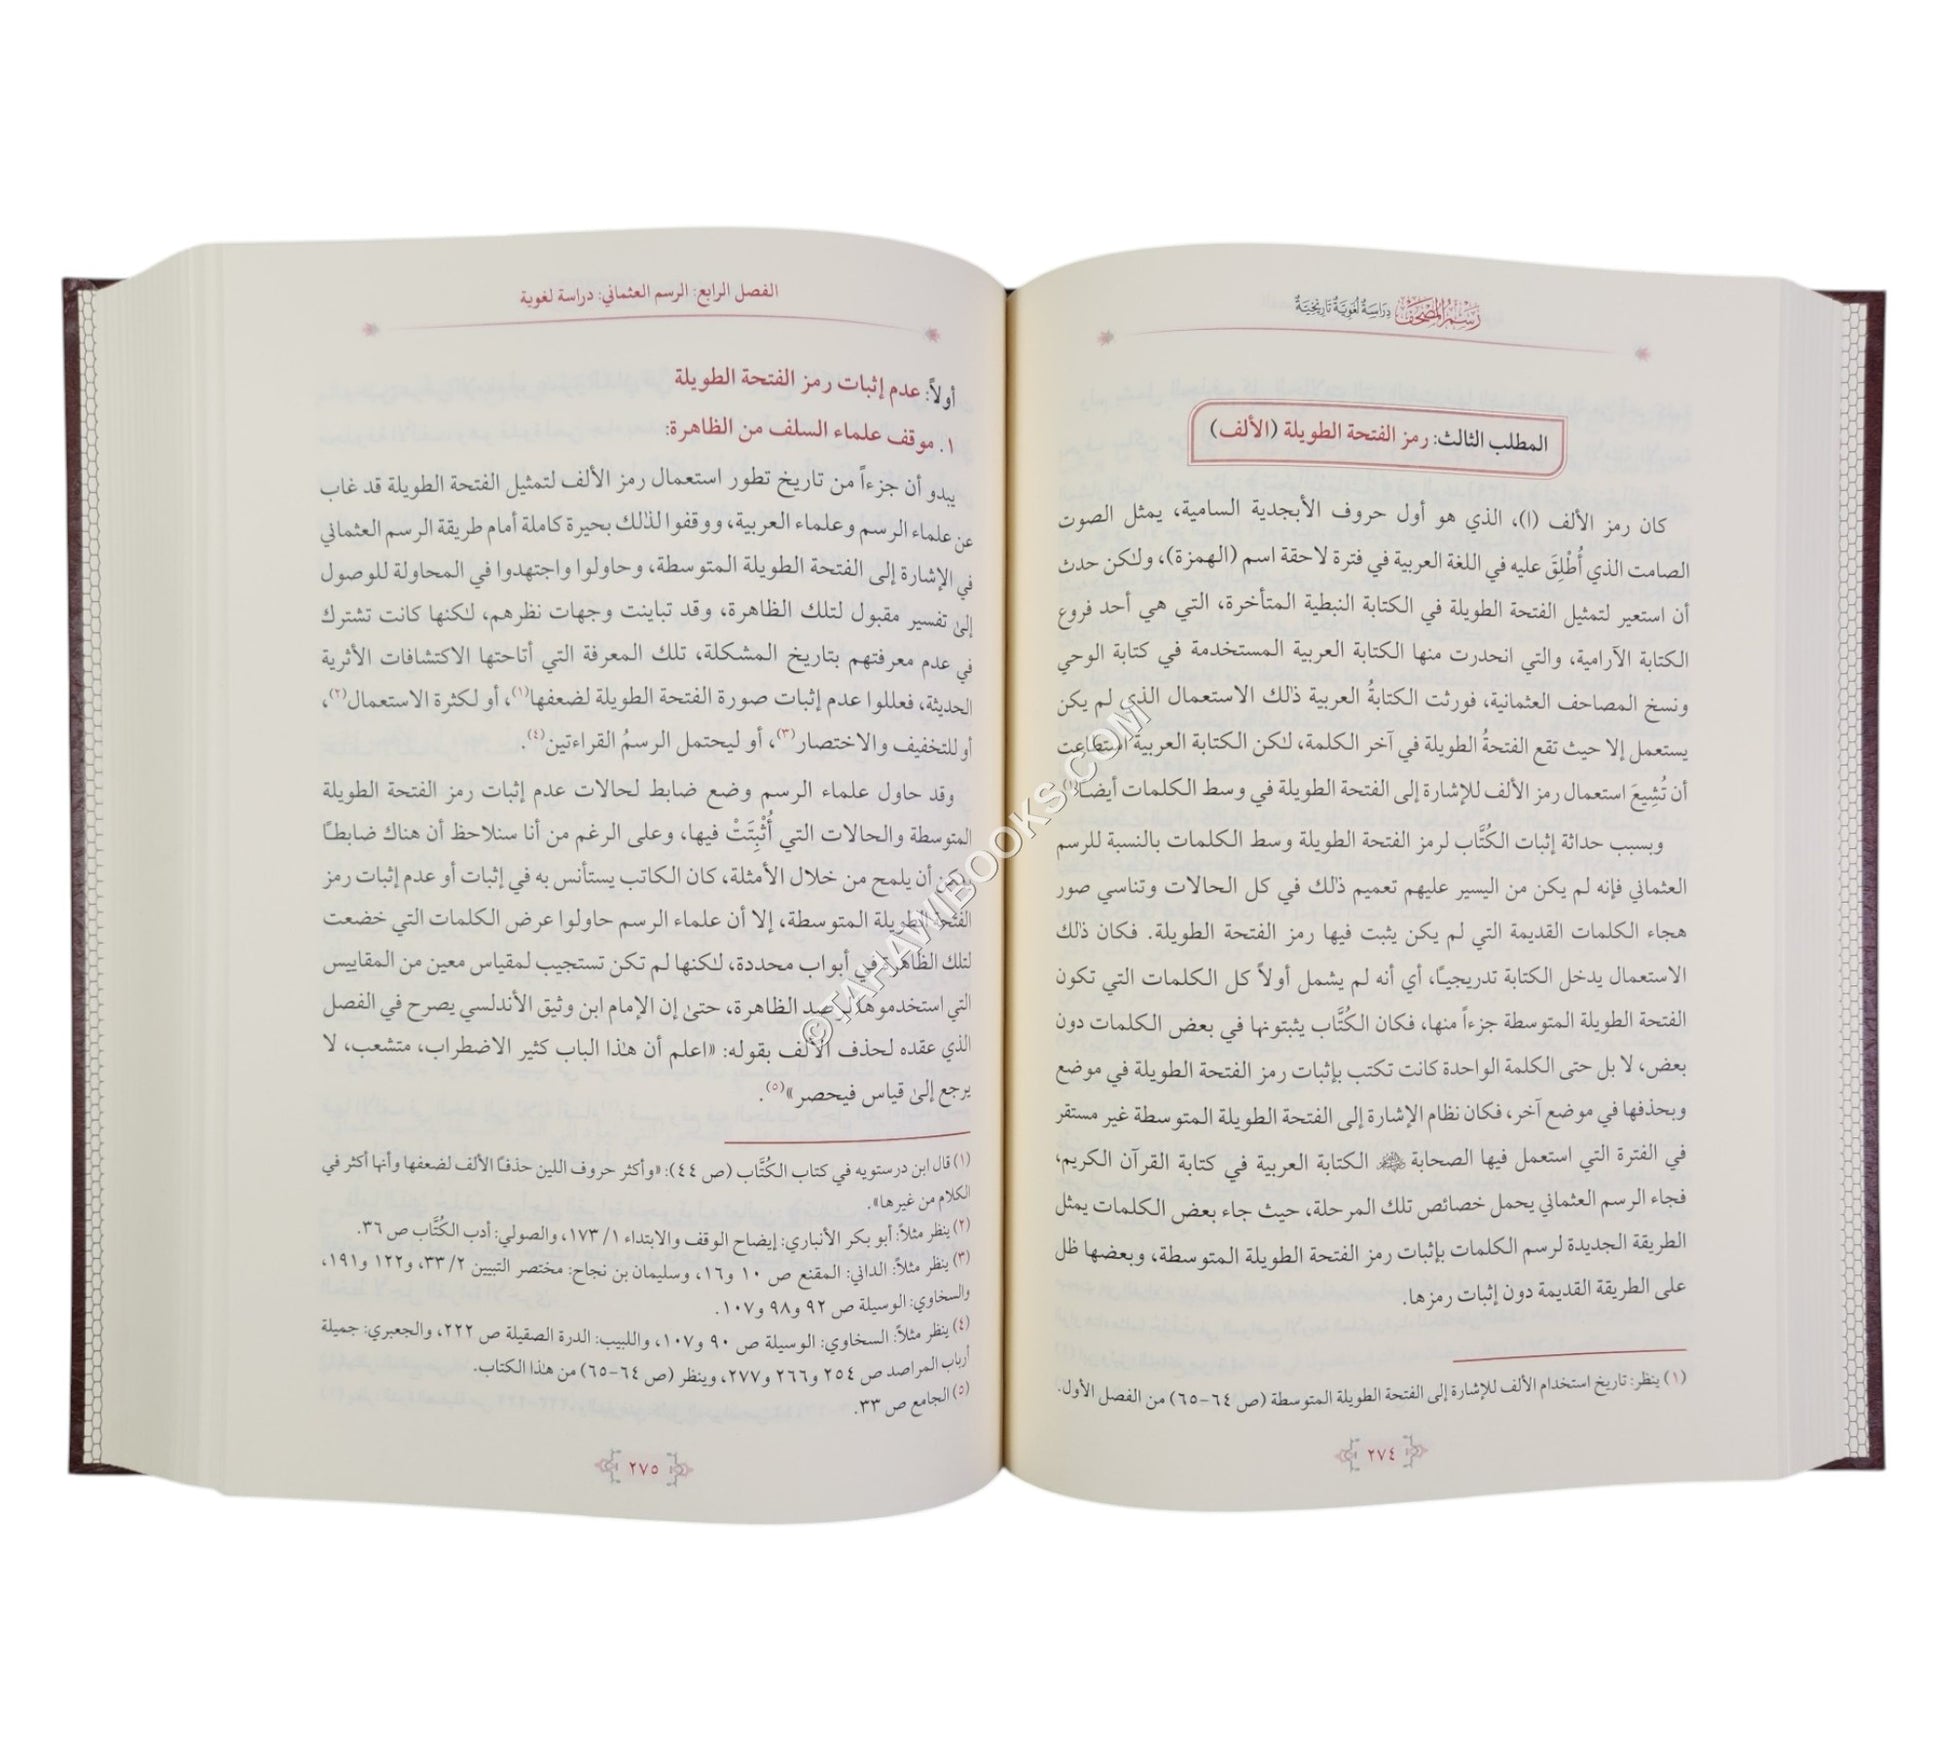 رسم المصحف دراسة لغوية تاريخية
المطلب الثالث: رمز الفتحة الطويلة (الألف)
كان رمز الألف (ا)، الذي هو أول حروف الأبجدية السامية، يمثل الصوت
الصامت الذي أُطْلِقَ عليه في اللغة العربية في فترة لاحقة اسم (الهمزة)، ولٰكن حدث
أن استعير لتمثيل الفتحة الطويلة في الكتابة النبطية المتأخرة، التي هي أحد فروع
الكتابة الآرامية، والتي انحدرت منها الكتابة العربية المستخدمة في كتابة الوحي
ونسخ المصاحف العثمانية، فورثت الكتابةُ العربية ذٰلك الاستعمال الذي لم يكن
يستعمل إلا حيث تقع الفتحةُ الطويلة في آخر الكلمة، لٰكن الكتابة العربية استطاعت
أن تُشِيعَ استعمال رمز الألف للإشارة إلى الفتحة الطويلة في وسط الكلمات أيضًا(١).
وبسبب حداثة إثبات الكُتَّاب لرمز الفتحة الطويلة وسط الكلمات بالنسبة للرسم
العثماني فإنه لم يكن من اليسير عليهم تعميم ذٰلك في كل الحالات وتناسي صور
هجاء الكلمات القديمة التي لم يكن يثبت فيها رمز الفتحة الطويلة. فكان ذٰلك
الاستعمال يدخل الكتابة تدريجيًا، أي أنه لم يشمل أولاً كل الكلمات التي تكون
الفتحة الطويلة المتوسطة جزءاً منها، فكان الكُتَّاب يثبتونها في بعض الكلمات دون
بعض، لا بل حتى الكلمة الواحدة كانت تكتب بإثبات رمز الفتحة الطويلة في موضع
وبحذفها في موضع آخر، فكان نظام الإشارة إلى الفتحة الطويلة المتوسطة غير مستقر
في الفترة التي استعمل فيها الصحابة الكتابة العربية في كتابة القرآن الكريم،
فجاء الرسم العثماني يحمل خصائص تلك المرحلة، حيث جاء بعض الكلمات يمثل
الطريقة الجديدة لرسم الكلمات بإثبات رمز الفتحة الطويلة المتوسطة، وبعضها ظل
على الطريقة القديمة دون إثبات رمزها.
(١) ينظر: تاريخ استخدام الألف للإشارة إلى الفتحة الطويلة المتوسطة (ص ٦٤-٦٥) من الفصل الأول.
٢٧٤
الفصل الرابع: الرسم العثماني: دراسة لغوية
أولاً: عدم إثبات رمز الفتحة الطويلة
١. موقف علماء السلف من الظاهرة:
يبدو أن جزءاً من تاريخ تطور استعمال رمز الألف لتمثيل الفتحة الطويلة قد غاب
عن علماء الرسم وعلماء العربية، ووقفوا لذٰلك بحيرة كاملة أمام طريقة الرسم العثماني
في الإشارة إلى الفتحة الطويلة المتوسطة، وحاولوا واجتهدوا في المحاولة للوصول
إلىٰ تفسير مقبول لتلك الظاهرة، وقد تباينت وجهات نظرهم، لٰكنها كانت تشترك
في عدم معرفتهم بتاريخ المشكلة، تلك المعرفة التي أتاحتها الاكتشافات الأثرية
الحديثة، فعللوا عدم إثبات صورة الفتحة الطويلة لضعفها(١)، أو لكثرة الاستعمال(٢)،
أو للتخفيف والاختصار(٣)، أو ليحتمل الرسمُ القراءتين(٤).
وقد حاول علماء الرسم وضع ضابط لحالات عدم إثبات رمز الفتحة الطويلة
المتوسطة والحالات التي أُثْبِتَتْ فيها، وعلى الرغم من أنا سنلاحظ أن هناك ضابطًا
يمكن أن يلمح من خلال الأمثلة، كان الكاتب يستأنس به في إثبات أو عدم إثبات رمز
الفتحة الطويلة المتوسطة، إلا أن علماء الرسم حاولوا عرض الكلمات التي خضعت
لتلك الظاهرة في أبواب محددة، لٰكنها لم تكن تستجيب لمقياس معين من المقاييس
التي استخدموها لرصد الظاهرة، حتىٰ إن الإمام ابن وثيق الأندلسي يصرح في الفصل
الذي عقده لحذف الألف بقوله: «اعلم أن هٰذا الباب كثير الاضطراب، متشعب، لا
يرجع إلىٰ قياس فيحصر»(٥).
(١) قال ابن درستويه في كتاب الكُتَّاب (ص ٤٤): «وأكثر حروف اللين حذفًا الألف لضعفها وأنها أكثر في
الكلام من غيرها».
(٢) ينظر مثلاً: أبو بكر الأنباري: إيضاح الوقف والابتداء ١/ ١٧٣، والصولي: أدب الكُتَّاب ص ٣٦.
(٣) ينظر مثلاً: الداني: المقنع ص ١٠ و١٦، وسليمان بن نجاح: مختصر التبيين ٢/ ٣٣، و١٢٢ و١٩١،
والسخاوي: الوسيلة ص ٩٢ و٩٨ و١٠٧.
(٤) ينظر مثلاً: السخاوي: الوسيلة ص ٩٠ و١٠٧، واللبيب: الدرة الصقيلة ص ٢٢٢، والجعبري: جميلة
أرباب المراصد ص ٢٥٤ و٢٦٦ و٢٧٧، وينظر (ص ٦٤-٦٥) من هٰذا الكتاب.
(٥) الجامع ص ٣٣.
٢٧٥
©TAHAWIBOOKS.COM